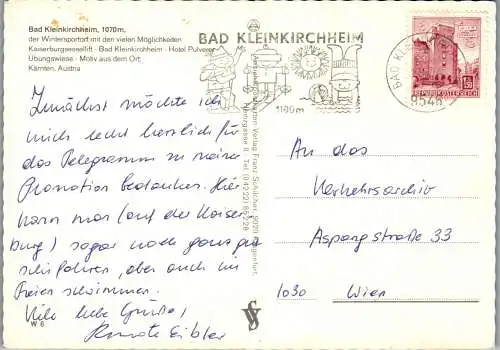 Bad Kleinkirchheim, 1070m,
der Wintersportort mit den vielen Möglichkeiten
Kaiserburgsessellift - Bad Kleinkirchheim - Hotel Pulverer
Übungswiese - Motiv aus dem Ort;
Kärnten, Austria
BAD KLEINKIRCHHEIM
1100m
BAD KLEIN
9546
REPUBLIK ÖSTERREICH
Zunächst möchte ich
mich recht herzlich für
das Telegramm zu meiner
Promotion bedanken. Hier
kann man (auf der Kaiser
burg) sogar noch ganz gut
schifahren, aber auch im
Freien schwimmen.
Viele liebe Grüße,
Renate Eibler
W 6
Verlag Franz Schilcher, 9020 Klagenfurt,
An das
Verkehrsarchiv
Aspangstraße 33
1030 Wien